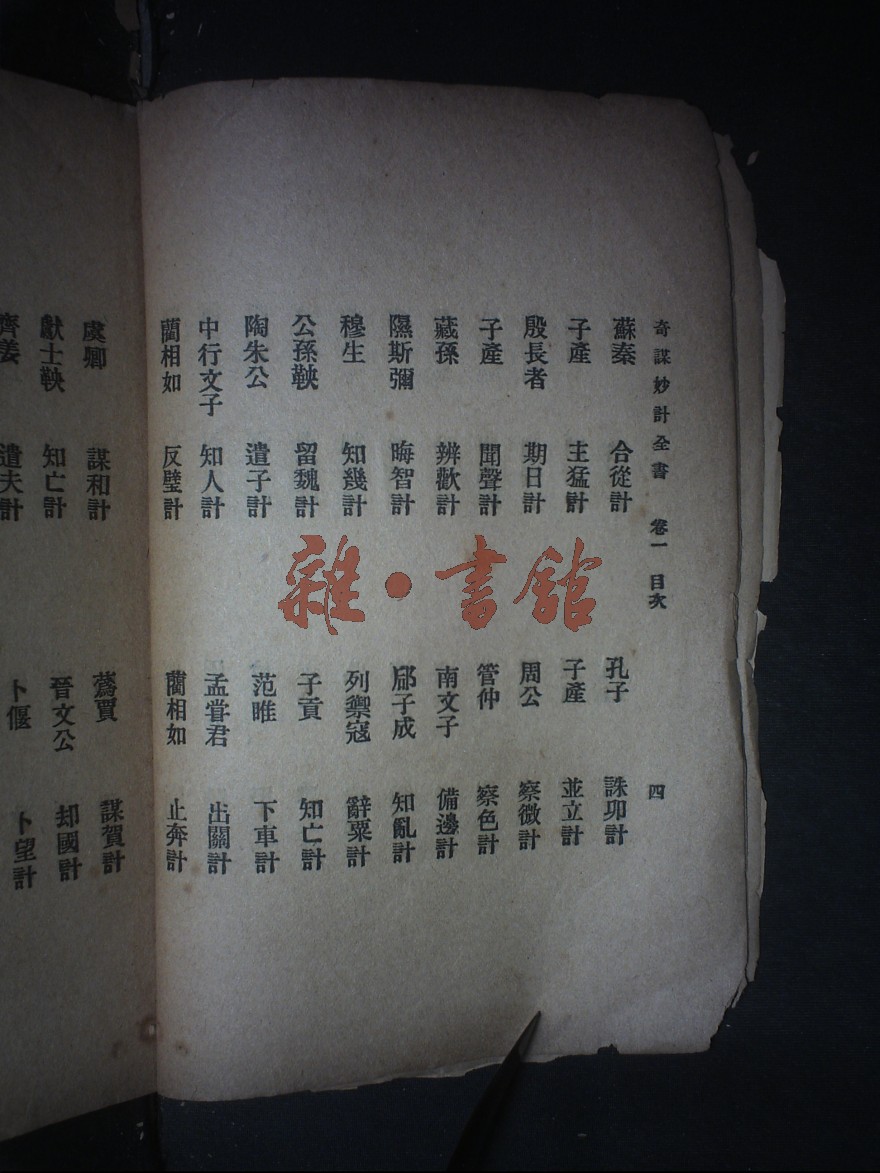 奇謀妙計全書 卷一 目次 四
蘇秦 合從計 孔子 誅卯計
子產 主猛計 子產 並立計
殷長者 期日計 周公 察微計
子產 聞聲計 管仲 察色計
藏孫 辨歡計 南文子 備邊計
隰斯彌 晦智計 郈子成 知亂計
穆生 知幾計 列禦寇 辭粟計
公孫鞅 留魏計 子貢 知亡計
陶朱公 遣子計 范雎 下車計
中行文子 知人計 孟嘗君 出關計
藺相如 反璧計 藺相如 止奔計
虞卿 謀和計 蔿賈 謀賀計
獻士鞅 知亡計 晉文公 却國計
齊姜 遣夫計 卜偃 卜望計
雜·書館